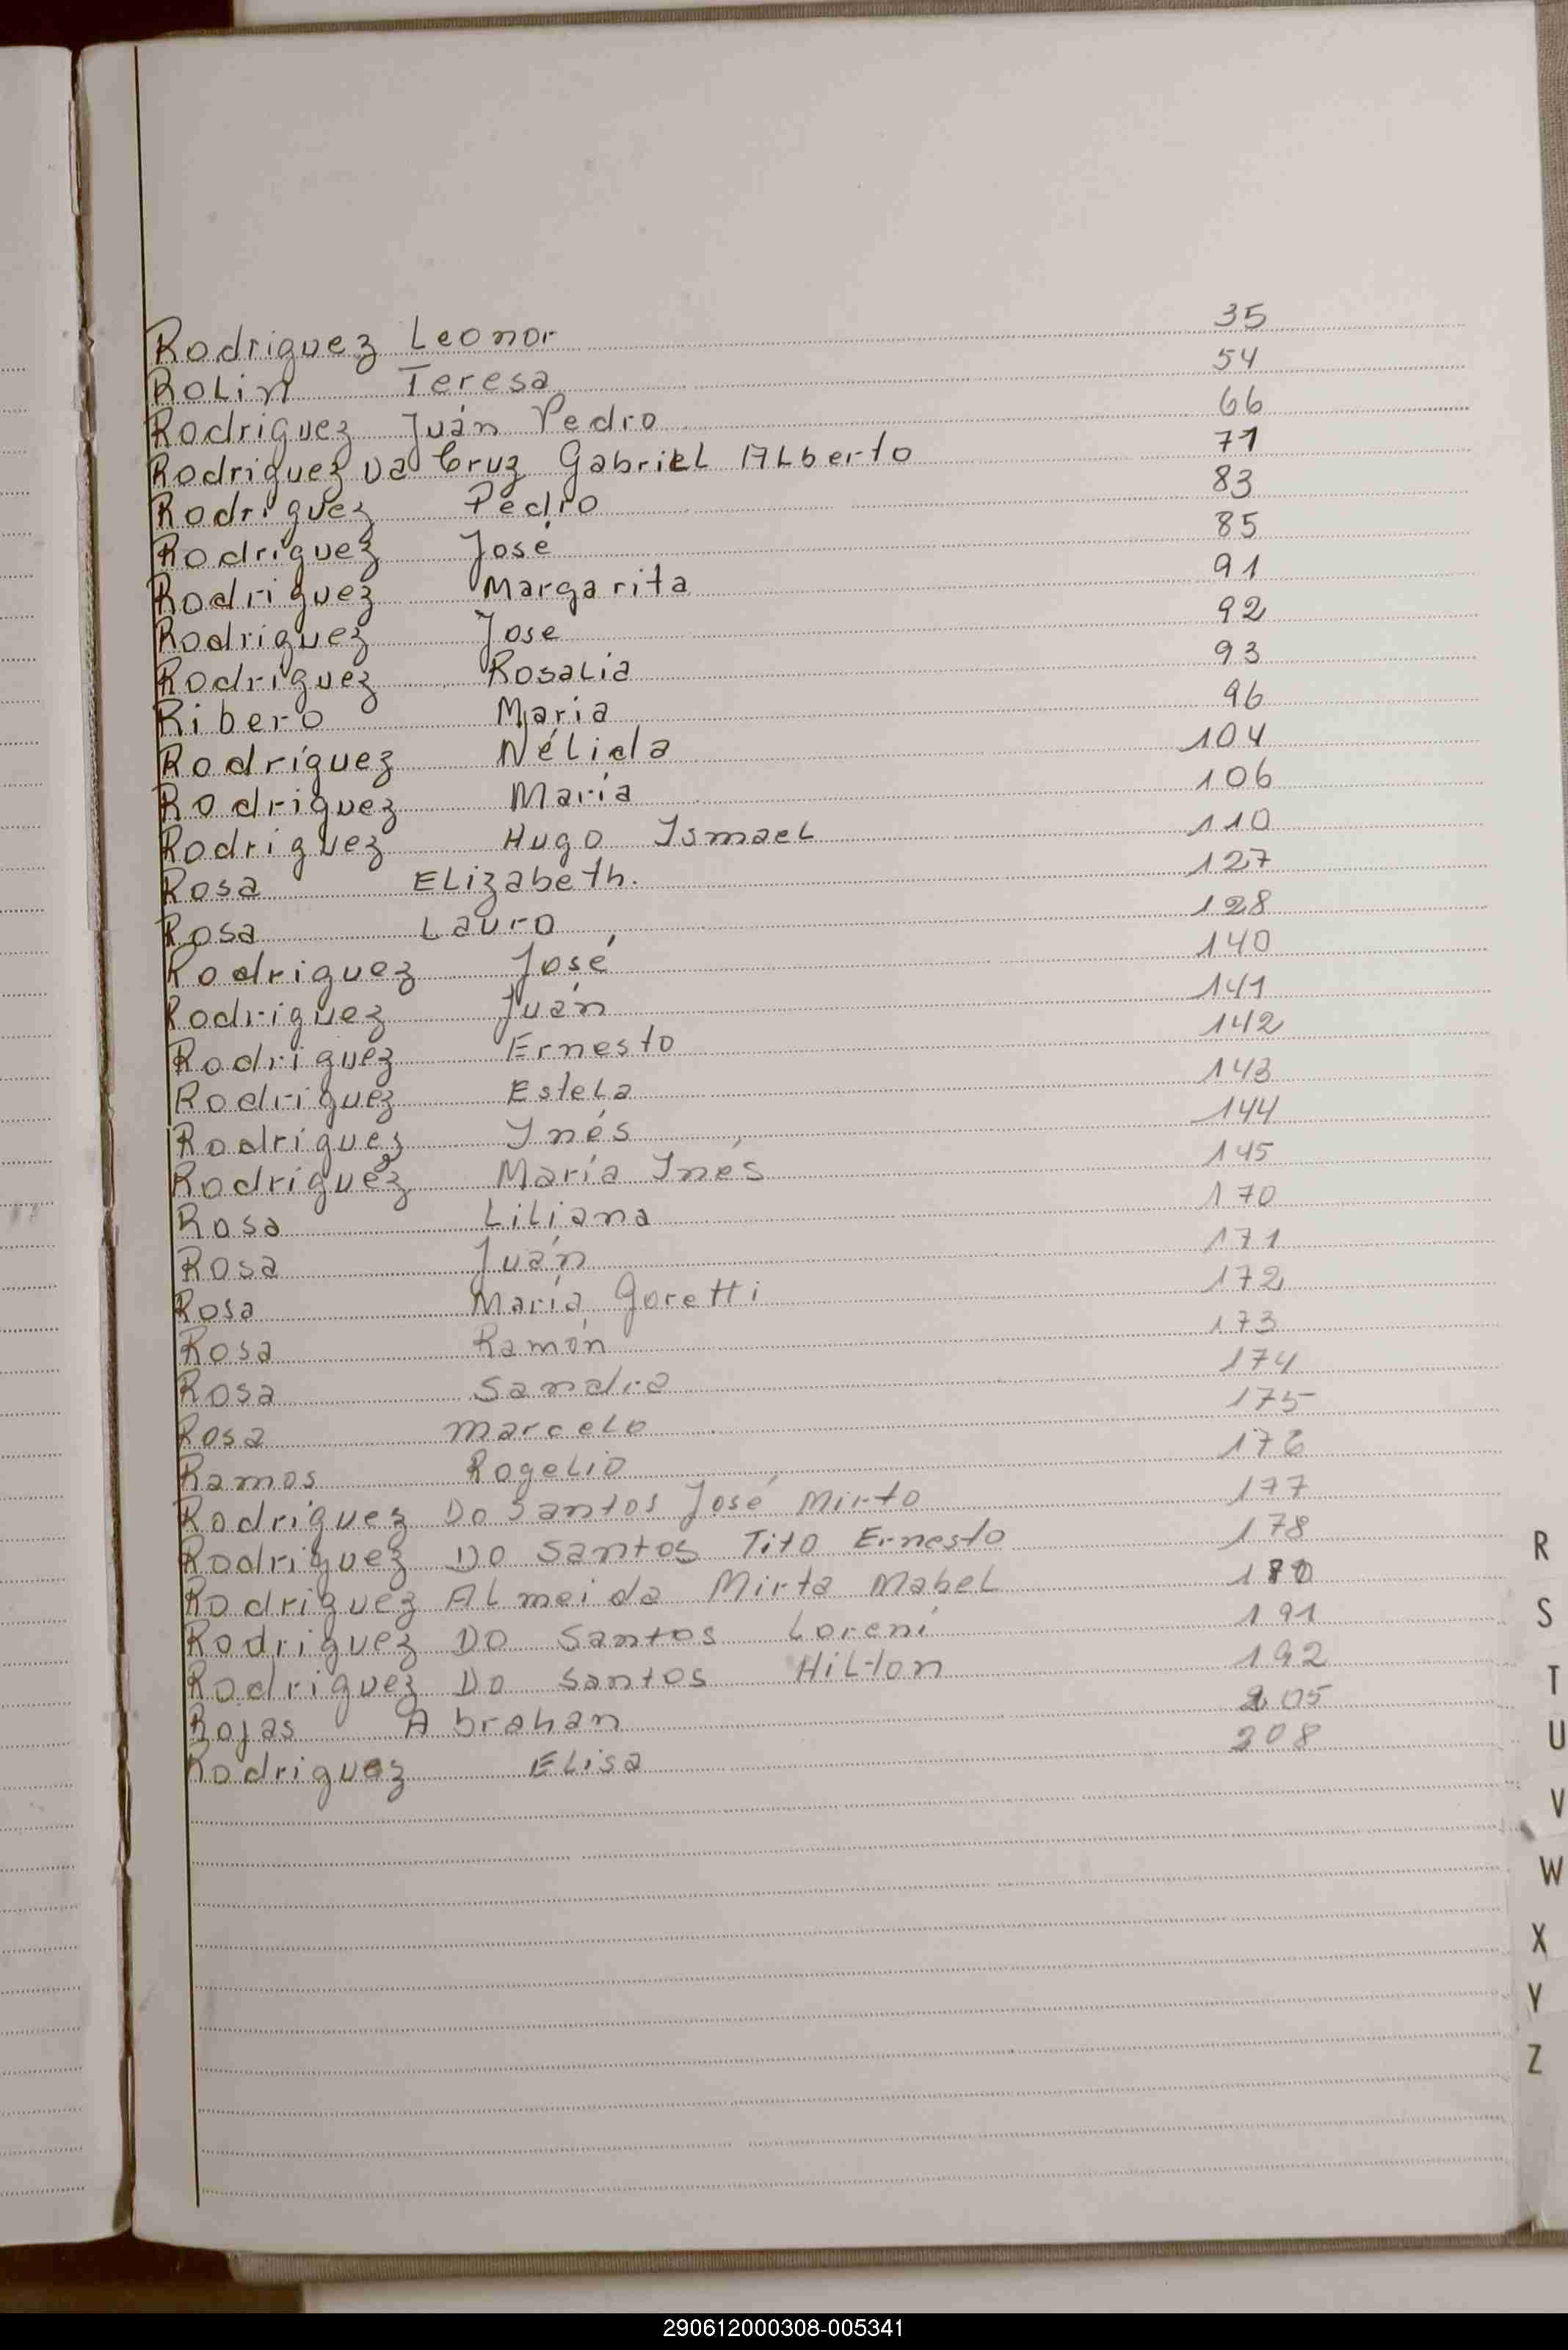 Rodriguez Leonor 35
Rolin Teresa 54
Rodriguez Juán Pedro 66
Rodriguez Da Cruz Gabriel Alberto 71
Rodriguez Pedro 83
Rodriguez José 85
Rodriguez Margarita 91
Rodriguez Jose 92
Rodriguez Rosalia 93
Ribero Maria 96
Rodríguez Nélida 104
Rodriguez María 106
Rodriguez Hugo Ismael 110
Rosa Elizabeth. 127
Rosa Lauro 128
Rodriguez José 140
Rodriguez Juán 141
Rodriguez Ernesto 142
Rodriguez Estela 143
Rodriguez Ynés 144
Rodriguez María Ynés 145
Rosa Liliana 170
Rosa Juán 171
Rosa María Goretti 172
Rosa Ramón 173
Rosa Sandra 174
Rosa Marcelo 175
Ramos Rogelio 176
Rodriguez Do Santos José Mirto 177
Rodriguez Do Santos Tito Ernesto 178
Rodriguez Almeida Mirta Mabel
Rodriguez Do Santos Lorení 191
Rodriguez Do Santos Hilton 192
Rojas Abrahan 205
Rodriguez Elisa 208
R
S
T
U
V
W
X
Y
Z
290612000308-005341